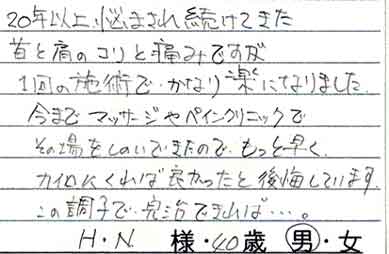 20年以上、悩まされ続けてきた
首と肩のコリと痛みですが
1回の施術で、かなり楽になりました。
今まで マッサージやペインクリニックで
その場をしのいできたので、もっと早く、
カイロにくれば良かったと後悔しています。
この調子で、完治できれば・・・。
H・N. 様・40歳 男・女